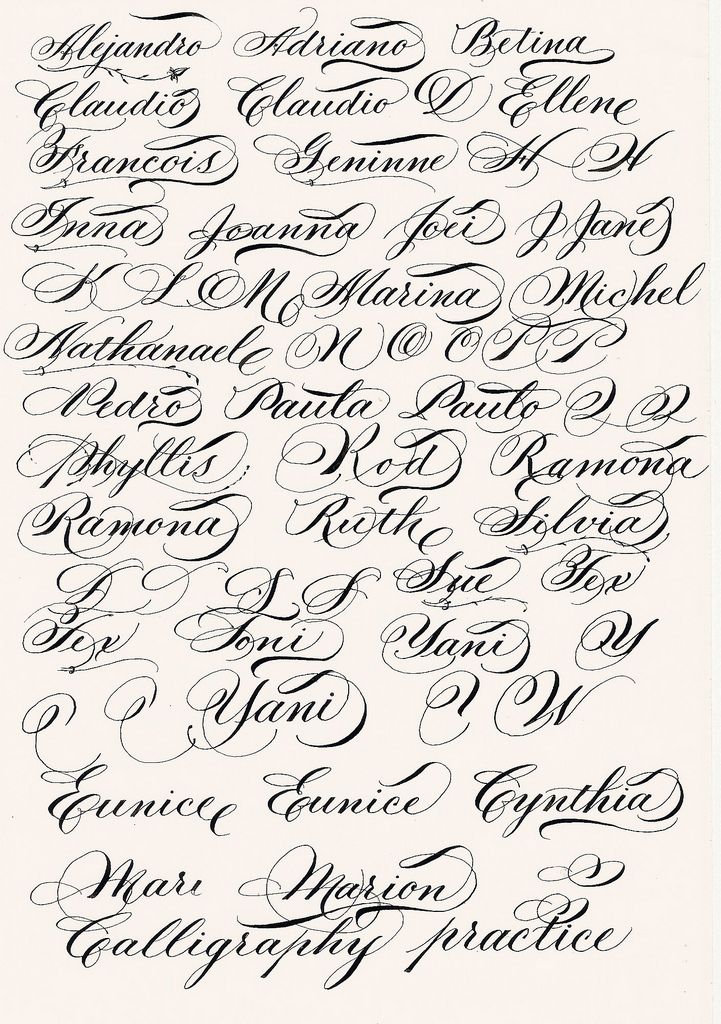 Alejandro Adriano Betina
Claudio Claudio D Ellene
Francois Geninne H H
Inna Joanna Joei J Jane
K L M Marina Michel
Nathanael N O O P P
Pedro Paula Paulo Q Q
Phyllis Rod Ramona
Ramona Ruth Silvia
S S Sue Tex
Tex Toni Yani Y
Yani W
Eunice Eunice Cynthia
Mari Marion
Calligraphy practice